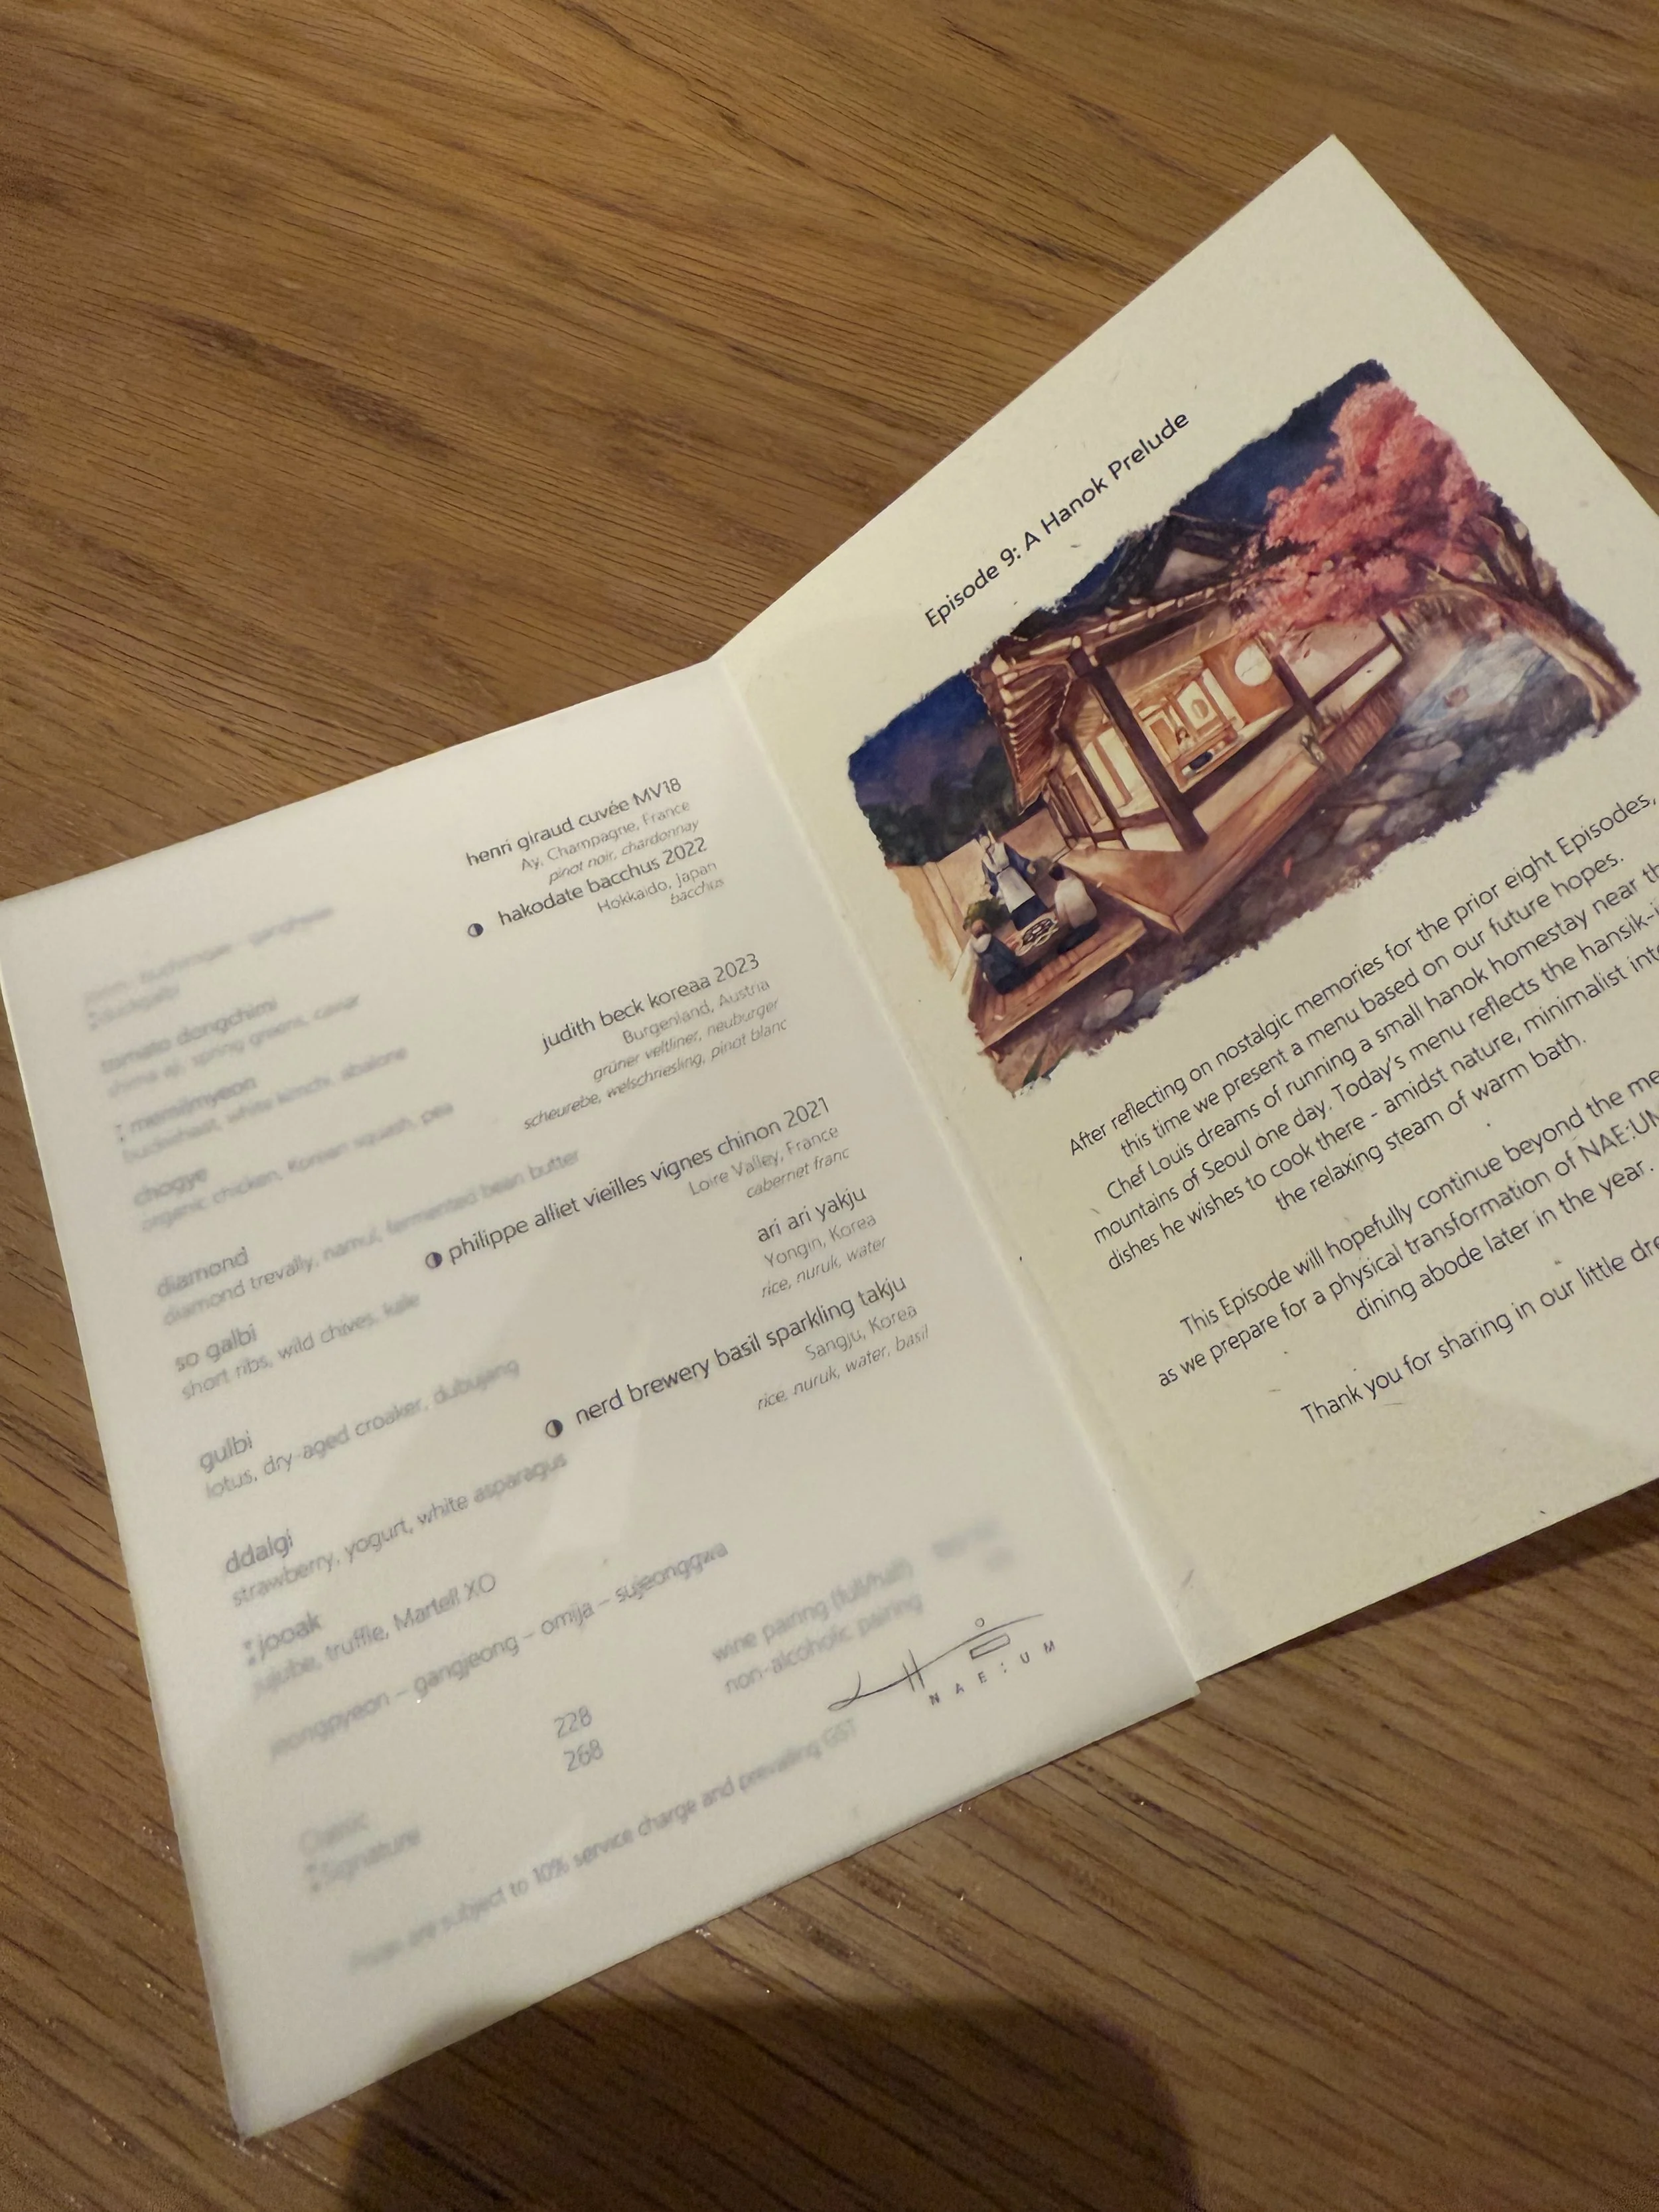 henri giraud cuvée MV18
Ay, Champagne, France
pinot noir, chardonnay
hakodate bacchus 2022
Hokkaido, Japan
bacchus
judith beck koreaa 2023
Burgenland, Austria
grüner veltliner, neuburger
scheurebe, welschriesling, pinot blanc
philippe alliet vieilles vignes chinon 2021
Loire Valley, France
cabernet franc
ari ari yakju
Yongin, Korea
rice, nuruk, water
nerd brewery basil sparkling takju
Sangju, Korea
rice, nuruk, water, basil
tomato dongchimi
shima aji, spring greens, caviar
memilmyeon
buckwheat, white kimchi, abalone
chogye
organic chicken, Korean squash, pea
diamond
diamond trevally, namul, fermented bean butter
so galbi
short ribs, wild chives, kale
gulbi
lotus, dry-aged croaker, dubujang
ddalgi
strawberry, yogurt, white asparagus
jooak
jujube, truffle, Martell XO
jeongpyeon – gangjeong – omija – sujeonggwa
wine pairing (full/half)
non-alcoholic pairing
NAE:UM
Classic 228
Signature 268
Prices are subject to 10% service charge and prevailing GST
Episode 9: A Hanok Prelude
After reflecting on nostalgic memories for the prior eight Episodes,
this time we present a menu based on our future hopes.
Chef Louis dreams of running a small hanok homestay near
mountains of Seoul one day. Today's menu reflects the
dishes he wishes to cook there - amidst nature, minimalist
the relaxing steam of warm bath.
This Episode will hopefully continue beyond the
as we prepare for a physical transformation of NAE:UM
dining abode later in the year.
Thank you for sharing in our little